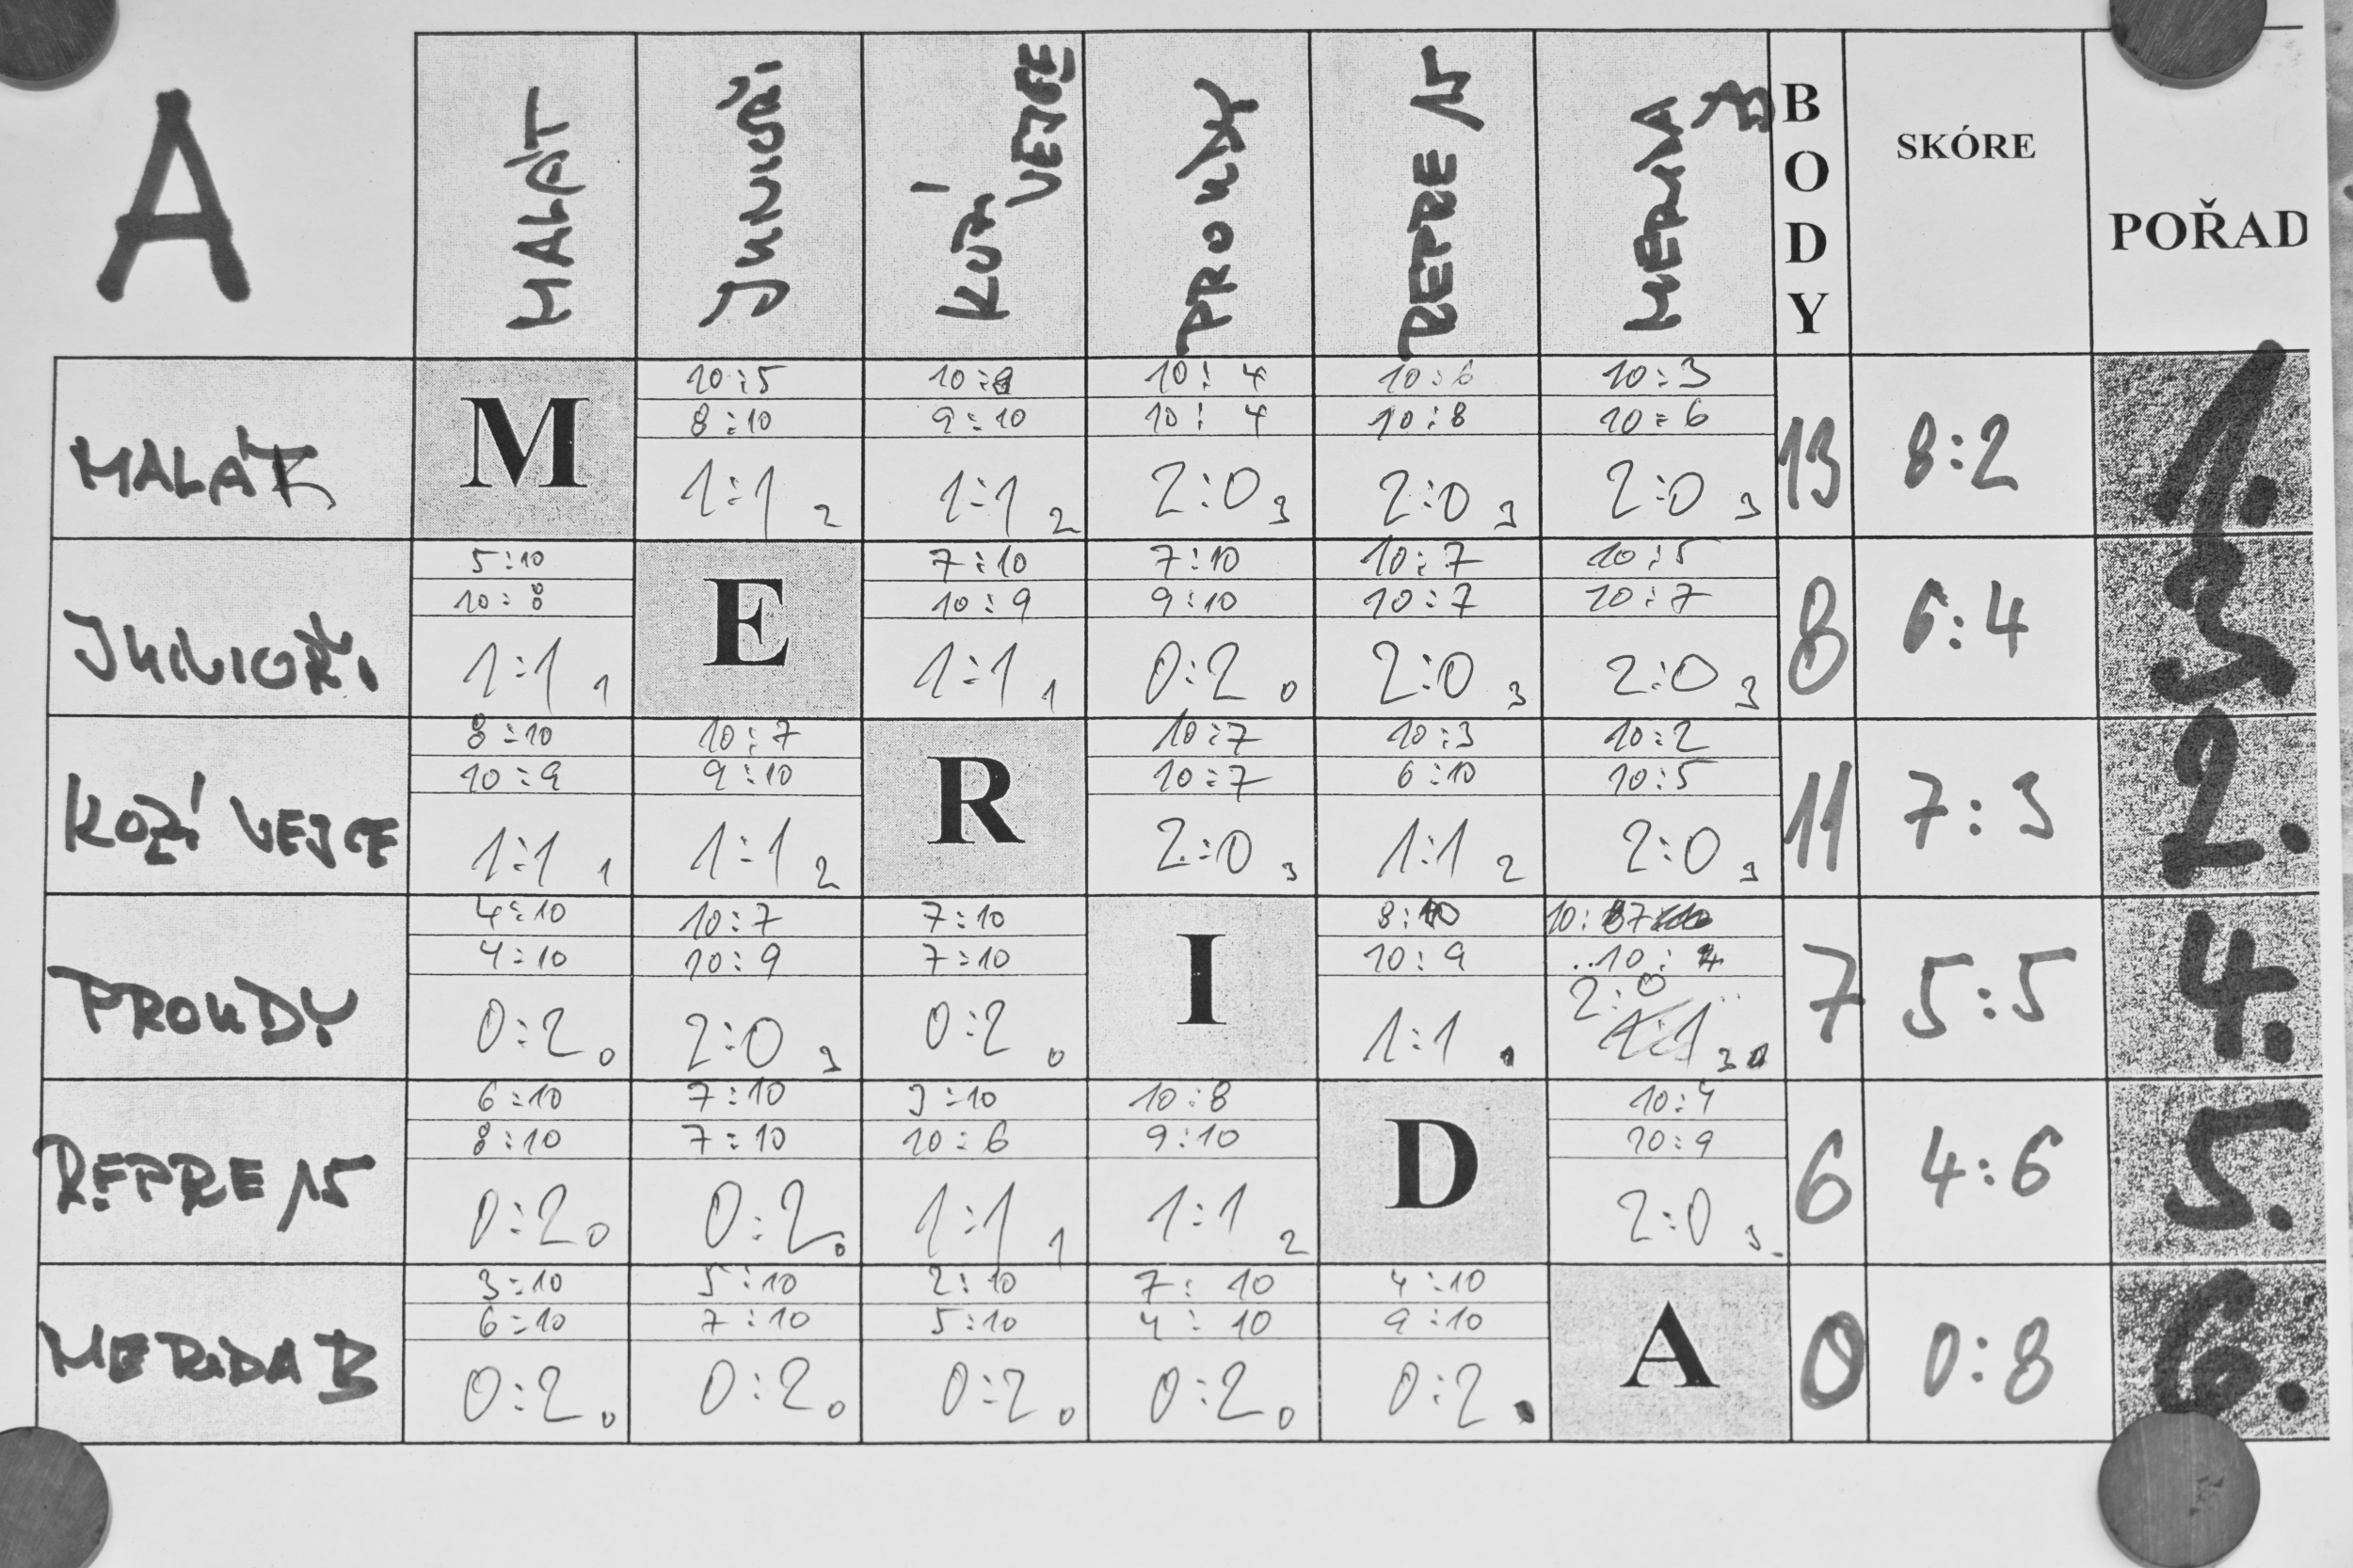 A
MALÁT JUNIOŘI KOZÍ VEJCE PROUDY REPRE 15 MERIDA B BODY SKÓRE POŘAD
10:5 10:8 10:4 10:6 10:3
8:10 9:10 10:4 10:8 10:6
MALÁT M 1:1 2 1:1 2 2:0 3 2:0 3 2:0 3 13 8:2 1.
5:10 7:10 7:10 10:7 10:5
10:8 10:9 9:10 10:7 10:7
JUNIOŘI 1:1 1 E 1:1 1 0:2 0 2:0 3 2:0 3 8 6:4 3
8:10 10:7 10:7 10:3 10:2
10:9 9:10 10:7 6:10 10:5
KOZÍ VEJCE 1:1 1 1:1 2 R 2:0 3 1:1 2 2:0 3 11 7:3 2.
4:10 10:7 7:10 8:10 10:7
4:10 10:9 7:10 10:9 10:4
PROUDY 0:2 0 2:0 3 0:2 0 I 1:1 2:0 1:1 3 7 5:5 4.
6:10 7:10 3:10 10:8 10:4
8:10 7:10 10:6 9:10 10:9
REPRE 15 0:2 0 0:2 0 1:1 1 1:1 2 D 2:0 3 6 4:6 5.
3:10 5:10 2:10 7:10 4:10
6:10 7:10 5:10 4:10 9:10
MERIDA B 0:2 0 0:2 0 0:2 0 0:2 0 0:2 A 0 0:8 6.